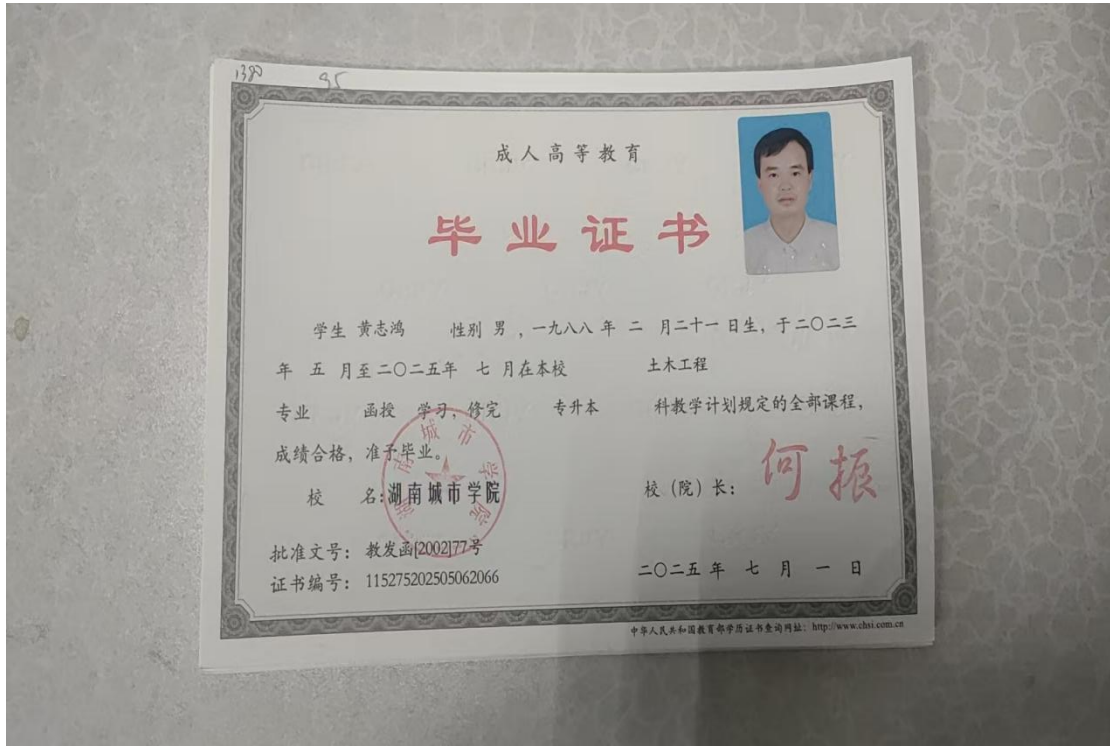 1380 95
成人高等教育
毕业证书
学生 黄志鸿 性别 男 ，一九八八 年 二 月二十一 日生，于二〇二三
年 五 月至二〇二五年 七 月在本校 土木工程
专业 函授 学习，修完 专升本 科教学计划规定的全部课程，
成绩合格，准予毕业。
湖南城市学院
校 名:湖南城市学院 校（院）长： 何振
批准文号： 教发函[2002]77号
证书编号： 115275202505062066 二〇二五 年 七 月 一 日
中华人民共和国教育部学历证书查询网址：http://www.chsi.com.cn